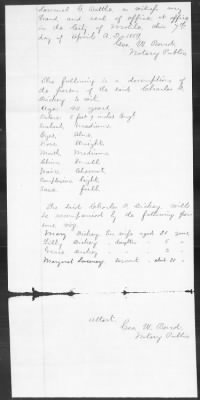 Samuel A. Auttle, in witness my
hand and seal of office at office
in the City of Mobile, this 7th
day of April A. D. 1887
Geo. W. Bond
Notary Public
The following is a description of
the person of the said Charles A.
Dickey to wit.
Age 40 years
Stature 5 feet 9 inches Engl
Forehead medium
Eyes Blue
Nose Straight
Mouth Medium
Chin Small
Hair Chesnut
Complexion Light
Face full
The said Charles A. Dickey will
be accompanied by the following
viz.
Mary Dickey his wife aged 28 years
Dickey daughter 5 "
Dickey " 3 "
Margaret servant abt 21 "
Attest.
Geo. W. Bond
Notary Public